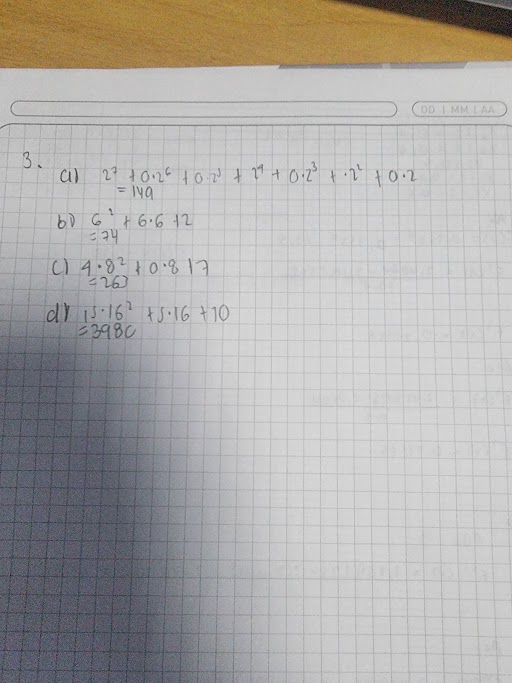 DD | MM | AA
3.
a) 2⁷ + 0·2⁶ + 0·2⁵ + 2⁴ + 0·2³ + ·2² + 0·2
= 149
b) 6² + 6·6 + 2
= 74
c) 4·8² + 0·8 + 7
= 263
d) 15·16² + 5·16 + 10
= 3980